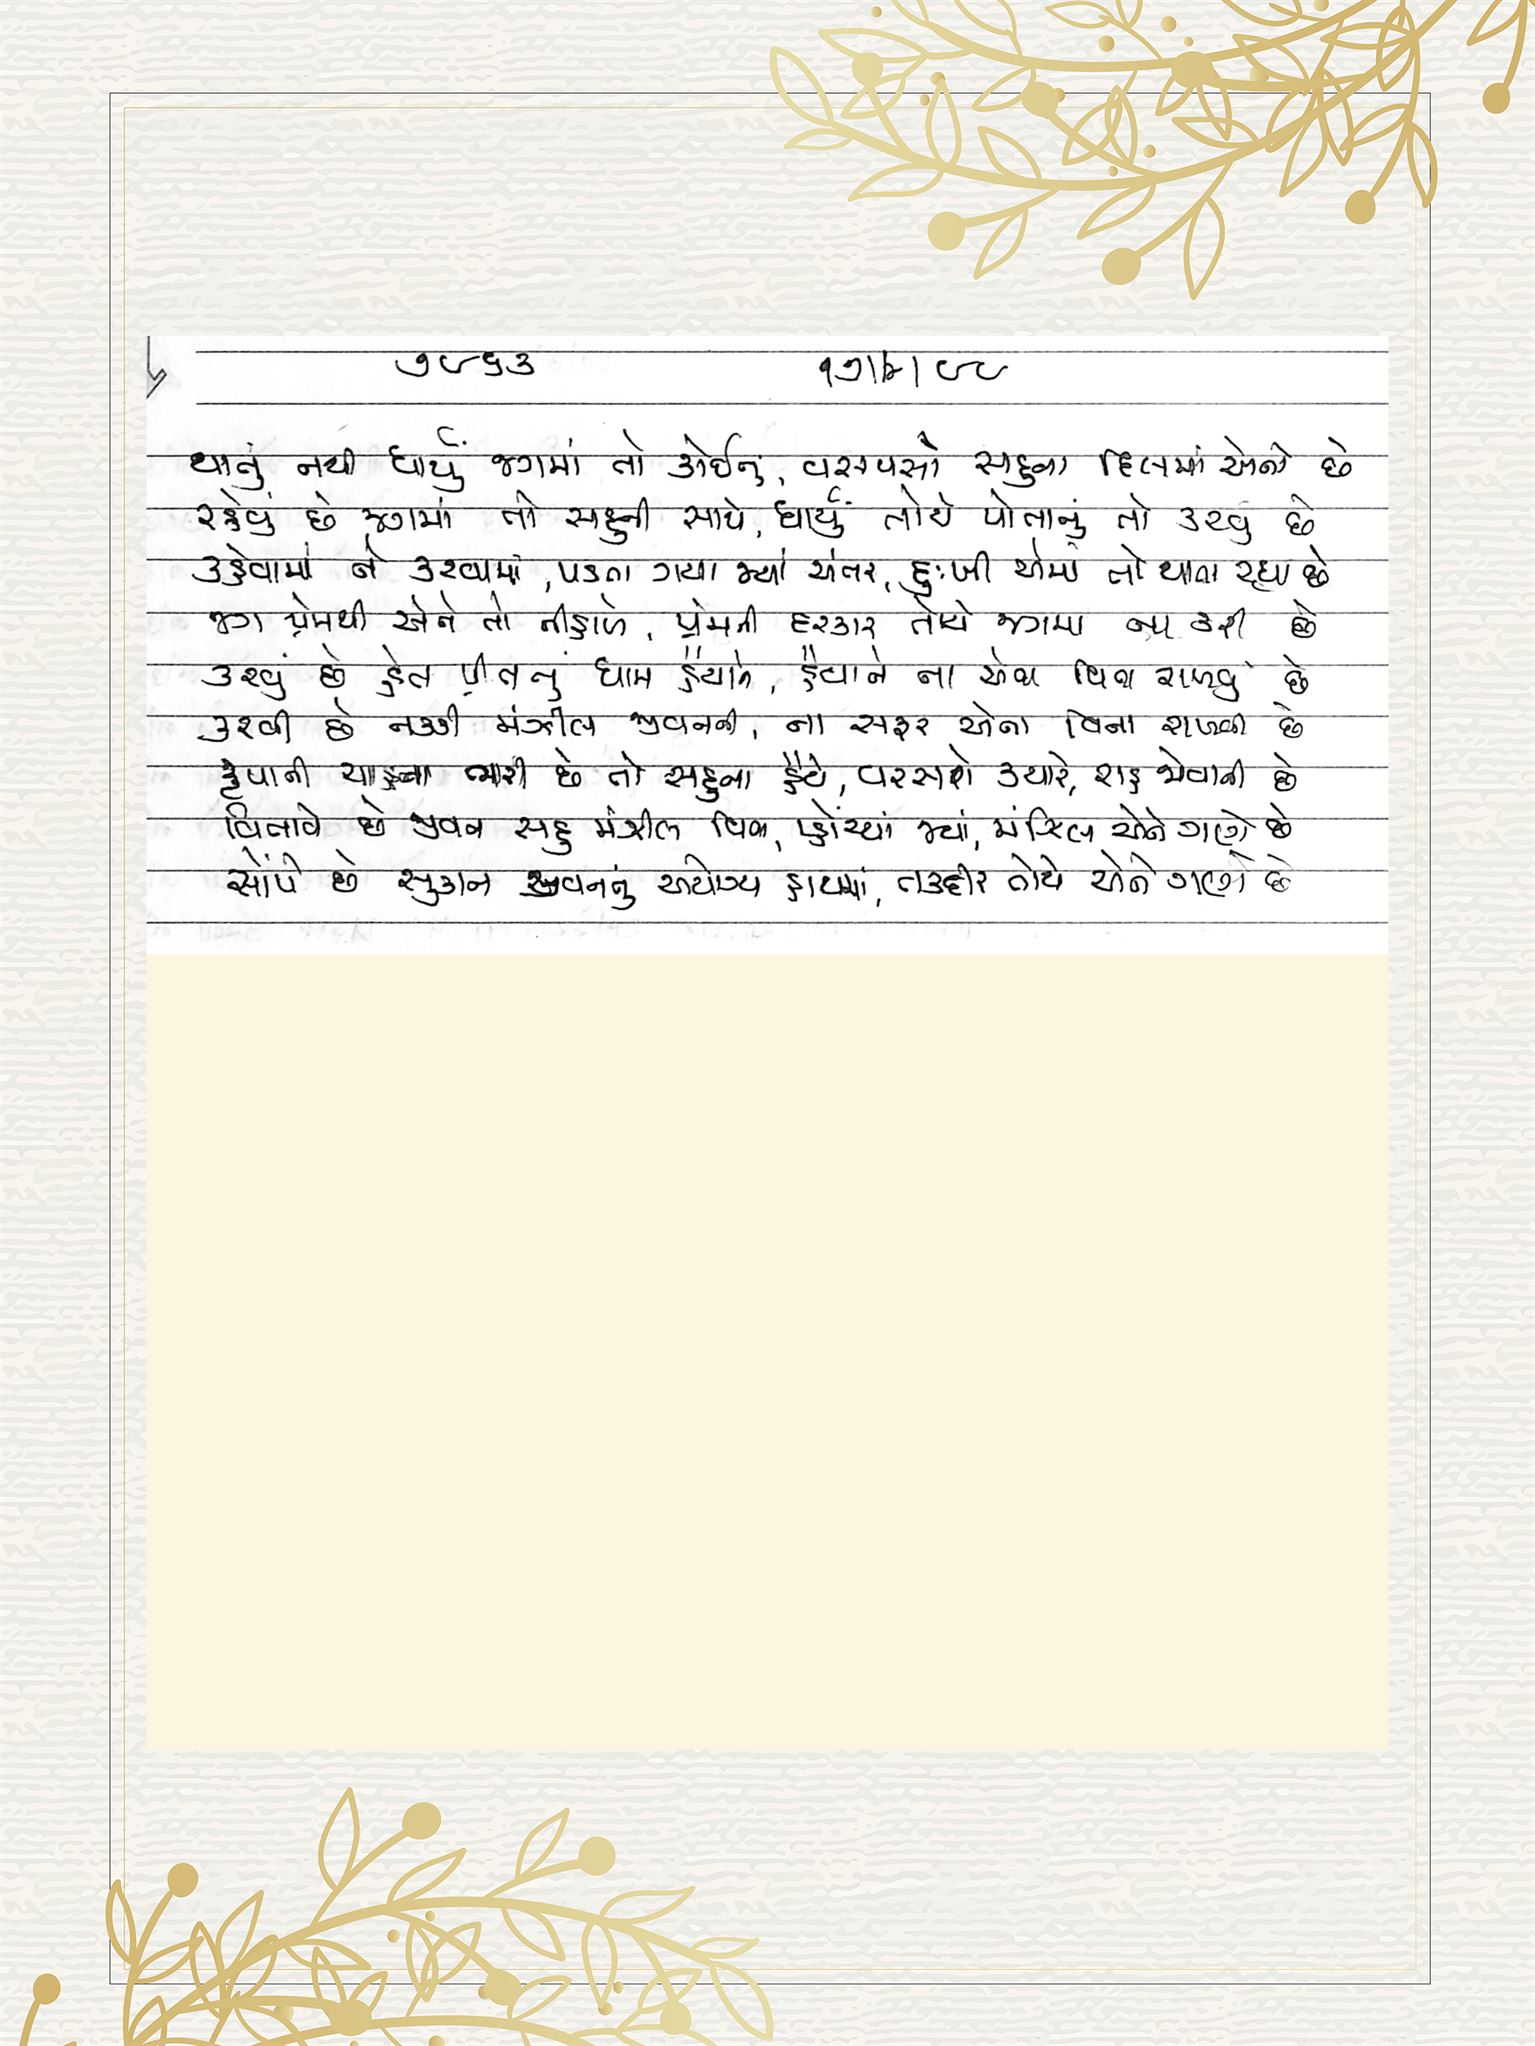 ૭૯૬૩ ૧૭/૪/૯૯
થાતું નથી ધાર્યું જગમાં તો કોઈનું, વસવસો સહુના દિલમાં એનો છે
રહેવું છે જગમાં તો સહુની સાથે, ધાર્યું તોયે પોતાનું તો કરવું છે
કહેવામાં ને કરવામાં, પડતા ગયા જ્યાં અંતર, દુઃખી એમાં તો થાતા રહ્યા છે
જગ પ્રેમથી એને તો નીહાળે, પ્રેમની દરકાર તોયે જગમાં ના કરી છે
કરવું છે હેત પ્રીતનું ધામ હૈયાને, હૈયાને ના એના વિના રાખવું છે
કરવી છે નક્કી મંઝીલ જીવનની, ના સફર એના વિના રાખવી છે
કૃપાની ચાહના ભારી છે તો સહુના હૈયે, વરસશે ક્યારે, રાહ જોવાની છે
વિતાવે છે જીવન સહુ મંઝીલ વિના, પ્હોંચ્યાં જ્યાં, મંઝિલ એને ગણો છે
સોંપે છે સુકાન જીવનનું અયોગ્ય હાથમાં, તકદીર તોયે એને ગણો છે